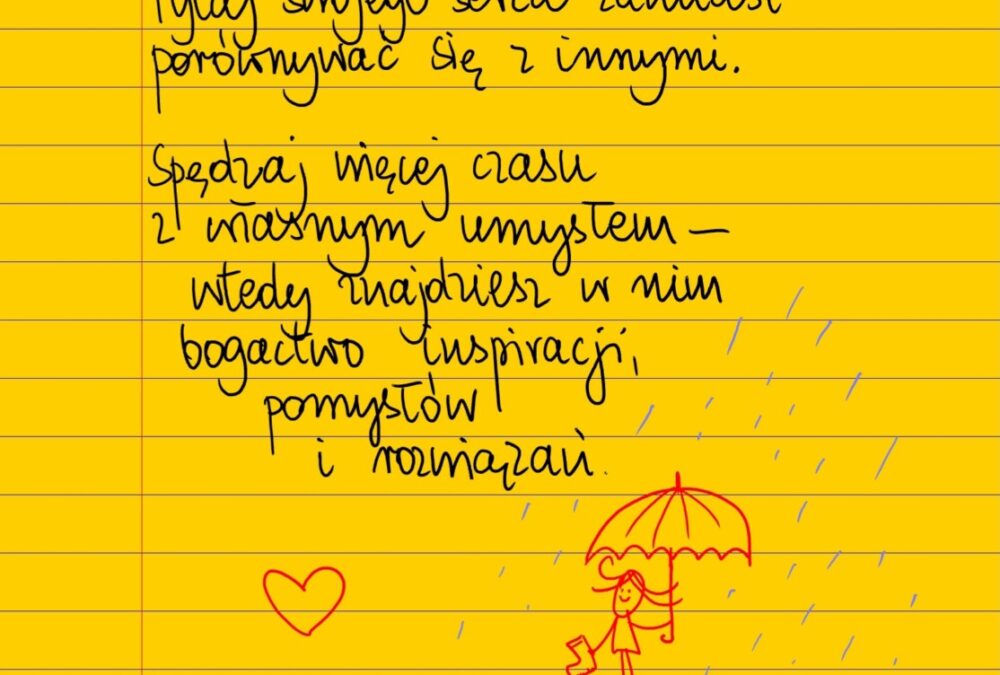 Pytaj swojego serca zamiast
porównywać się z innymi.
Spędzaj więcej czasu
z własnym umysłem –
wtedy znajdziesz w nim
bogactwo inspiracji,
pomysłów
i rozwiązań.